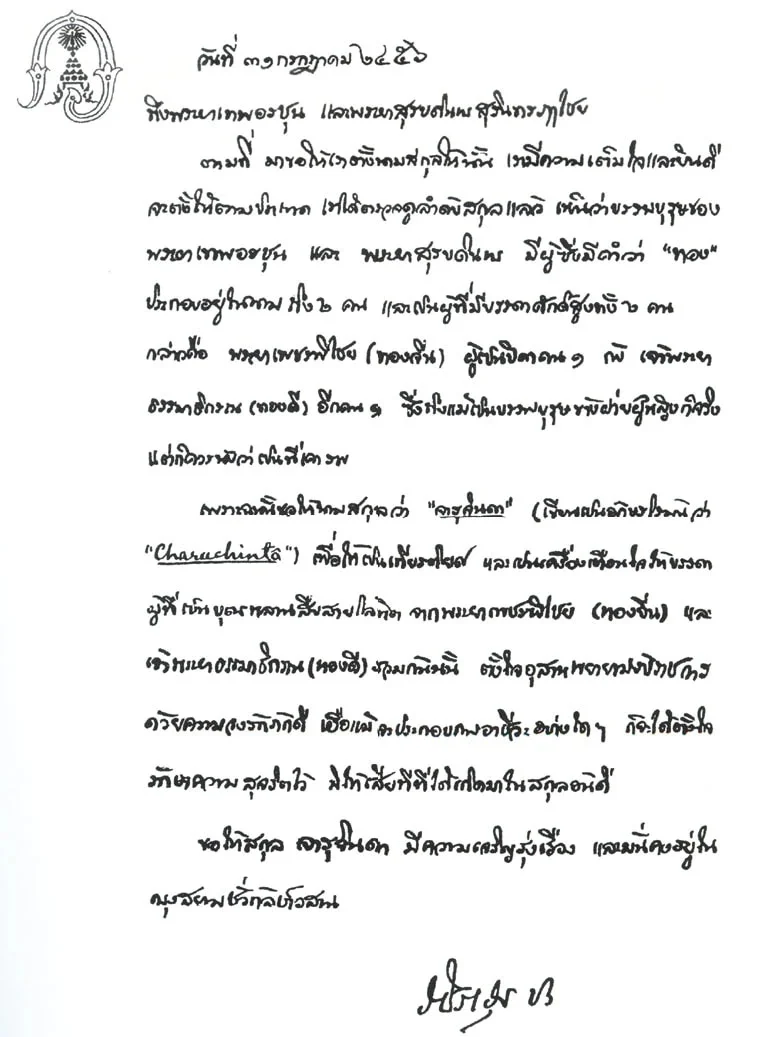 วันที่ ๓๑ กรกฎาคม ๒๔๕๖
ถึงพระยาเทพอรชุน และพระยาสุรบดินทร สุรินทรฦๅไชย
ตามที่ มาขอให้เราตั้งนามสกุลให้นั้น เรามีความเต็มใจและยินดี
จะตั้งให้ตามปรารถนา เราได้ตรวจดูลำดับสกุลแล้ว เห็นว่าบรรพบุรุษของ
พระยาเทพอรชุน และ พระยาสุรบดินทร มีผู้ซึ่งมีคำว่า "ทอง"
ประกอบอยู่ในนาม ถึง ๒ คน และเป็นผู้ที่มีบรรดาศักดิ์สูงทั้ง ๒ คน
กล่าวคือ พระยาเพชรพิไชย (ทองจีน) ผู้เป็นปิตาคน ๑ กับ เจ้าพระยา
ธรรมาธิกรณ (ทองดี) อีกคน ๑ ซึ่งถึงแม้เป็นบรรพบุรุษทางฝ่ายผู้หญิงก็จริง
แต่ก็ควรนับว่าเป็นที่เคารพ
เพราะฉะนั้นขอให้นามสกุลว่า "จารุจินดา" (เขียนเป็นอักษรโรมันว่า
"Charuchintâ") เพื่อให้เป็นเกียรติยศ และเป็นเครื่องเตือนใจให้บรรดา
ผู้ที่เป็นบุตรหลานสืบสายโลหิต จากพระยาเพชรพิไชย (ทองจีน) และ
เจ้าพระยาธรรมาธิกรณ (ทองดี) รวมกันนั้น ตั้งใจอุสาหพยายามรับราชการ
ด้วยความจงรักภักดี หรือแม้จะประกอบการอาชีวะอย่างใด ๆ ก็จะได้ตั้งใจ
รักษาความสุจริตไว้ มิให้เสียทีที่ได้เกิดมาในสกุลอันดี
ขอให้สกุล จารุจินดา มีความเจริญรุ่งเรือง และมั่นคงอยู่ใน
กรุงสยามชั่วกัลปาวสาน